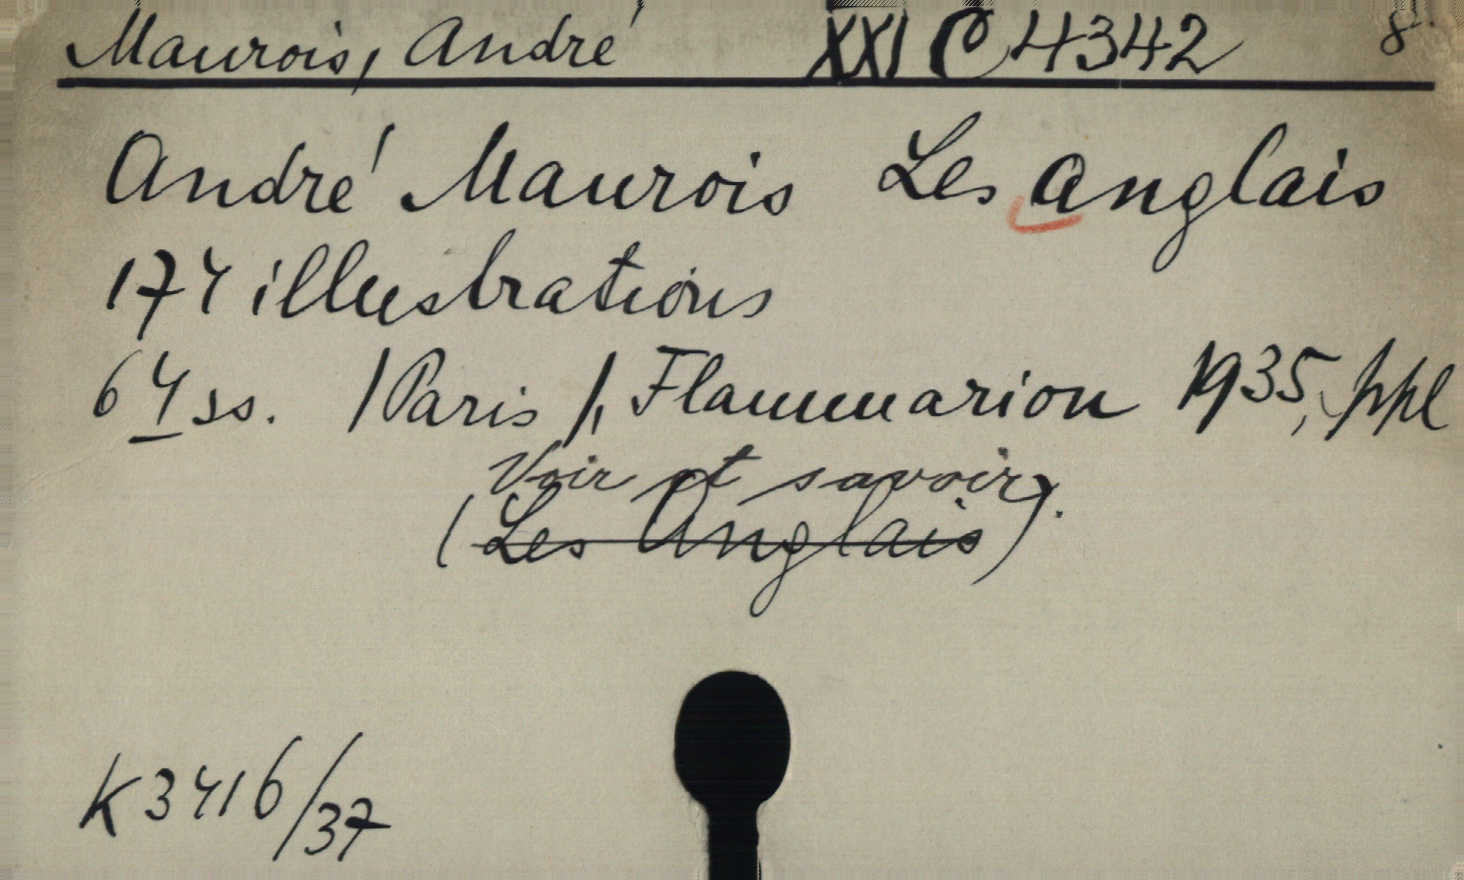 Maurois, André XXI C 4342 8°
André Maurois Les anglais
174 illustrations
64 ss. /Paris/, Flammarion 1935, ppl
Voir et savoir).
(Les Anglais)
K 3416/37